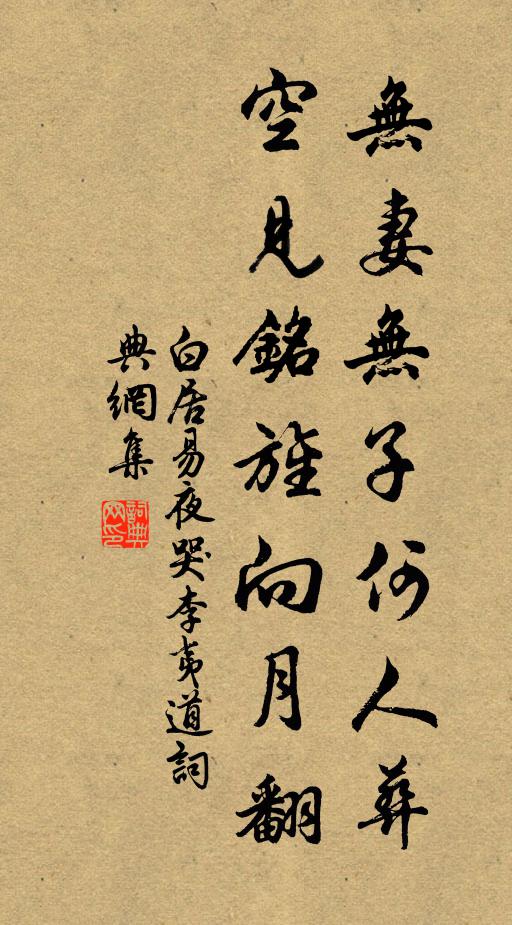 無妻無子何人葬
空見銘旌向月翻
白居易夜哭李夷道詞
典網集
詞典網印